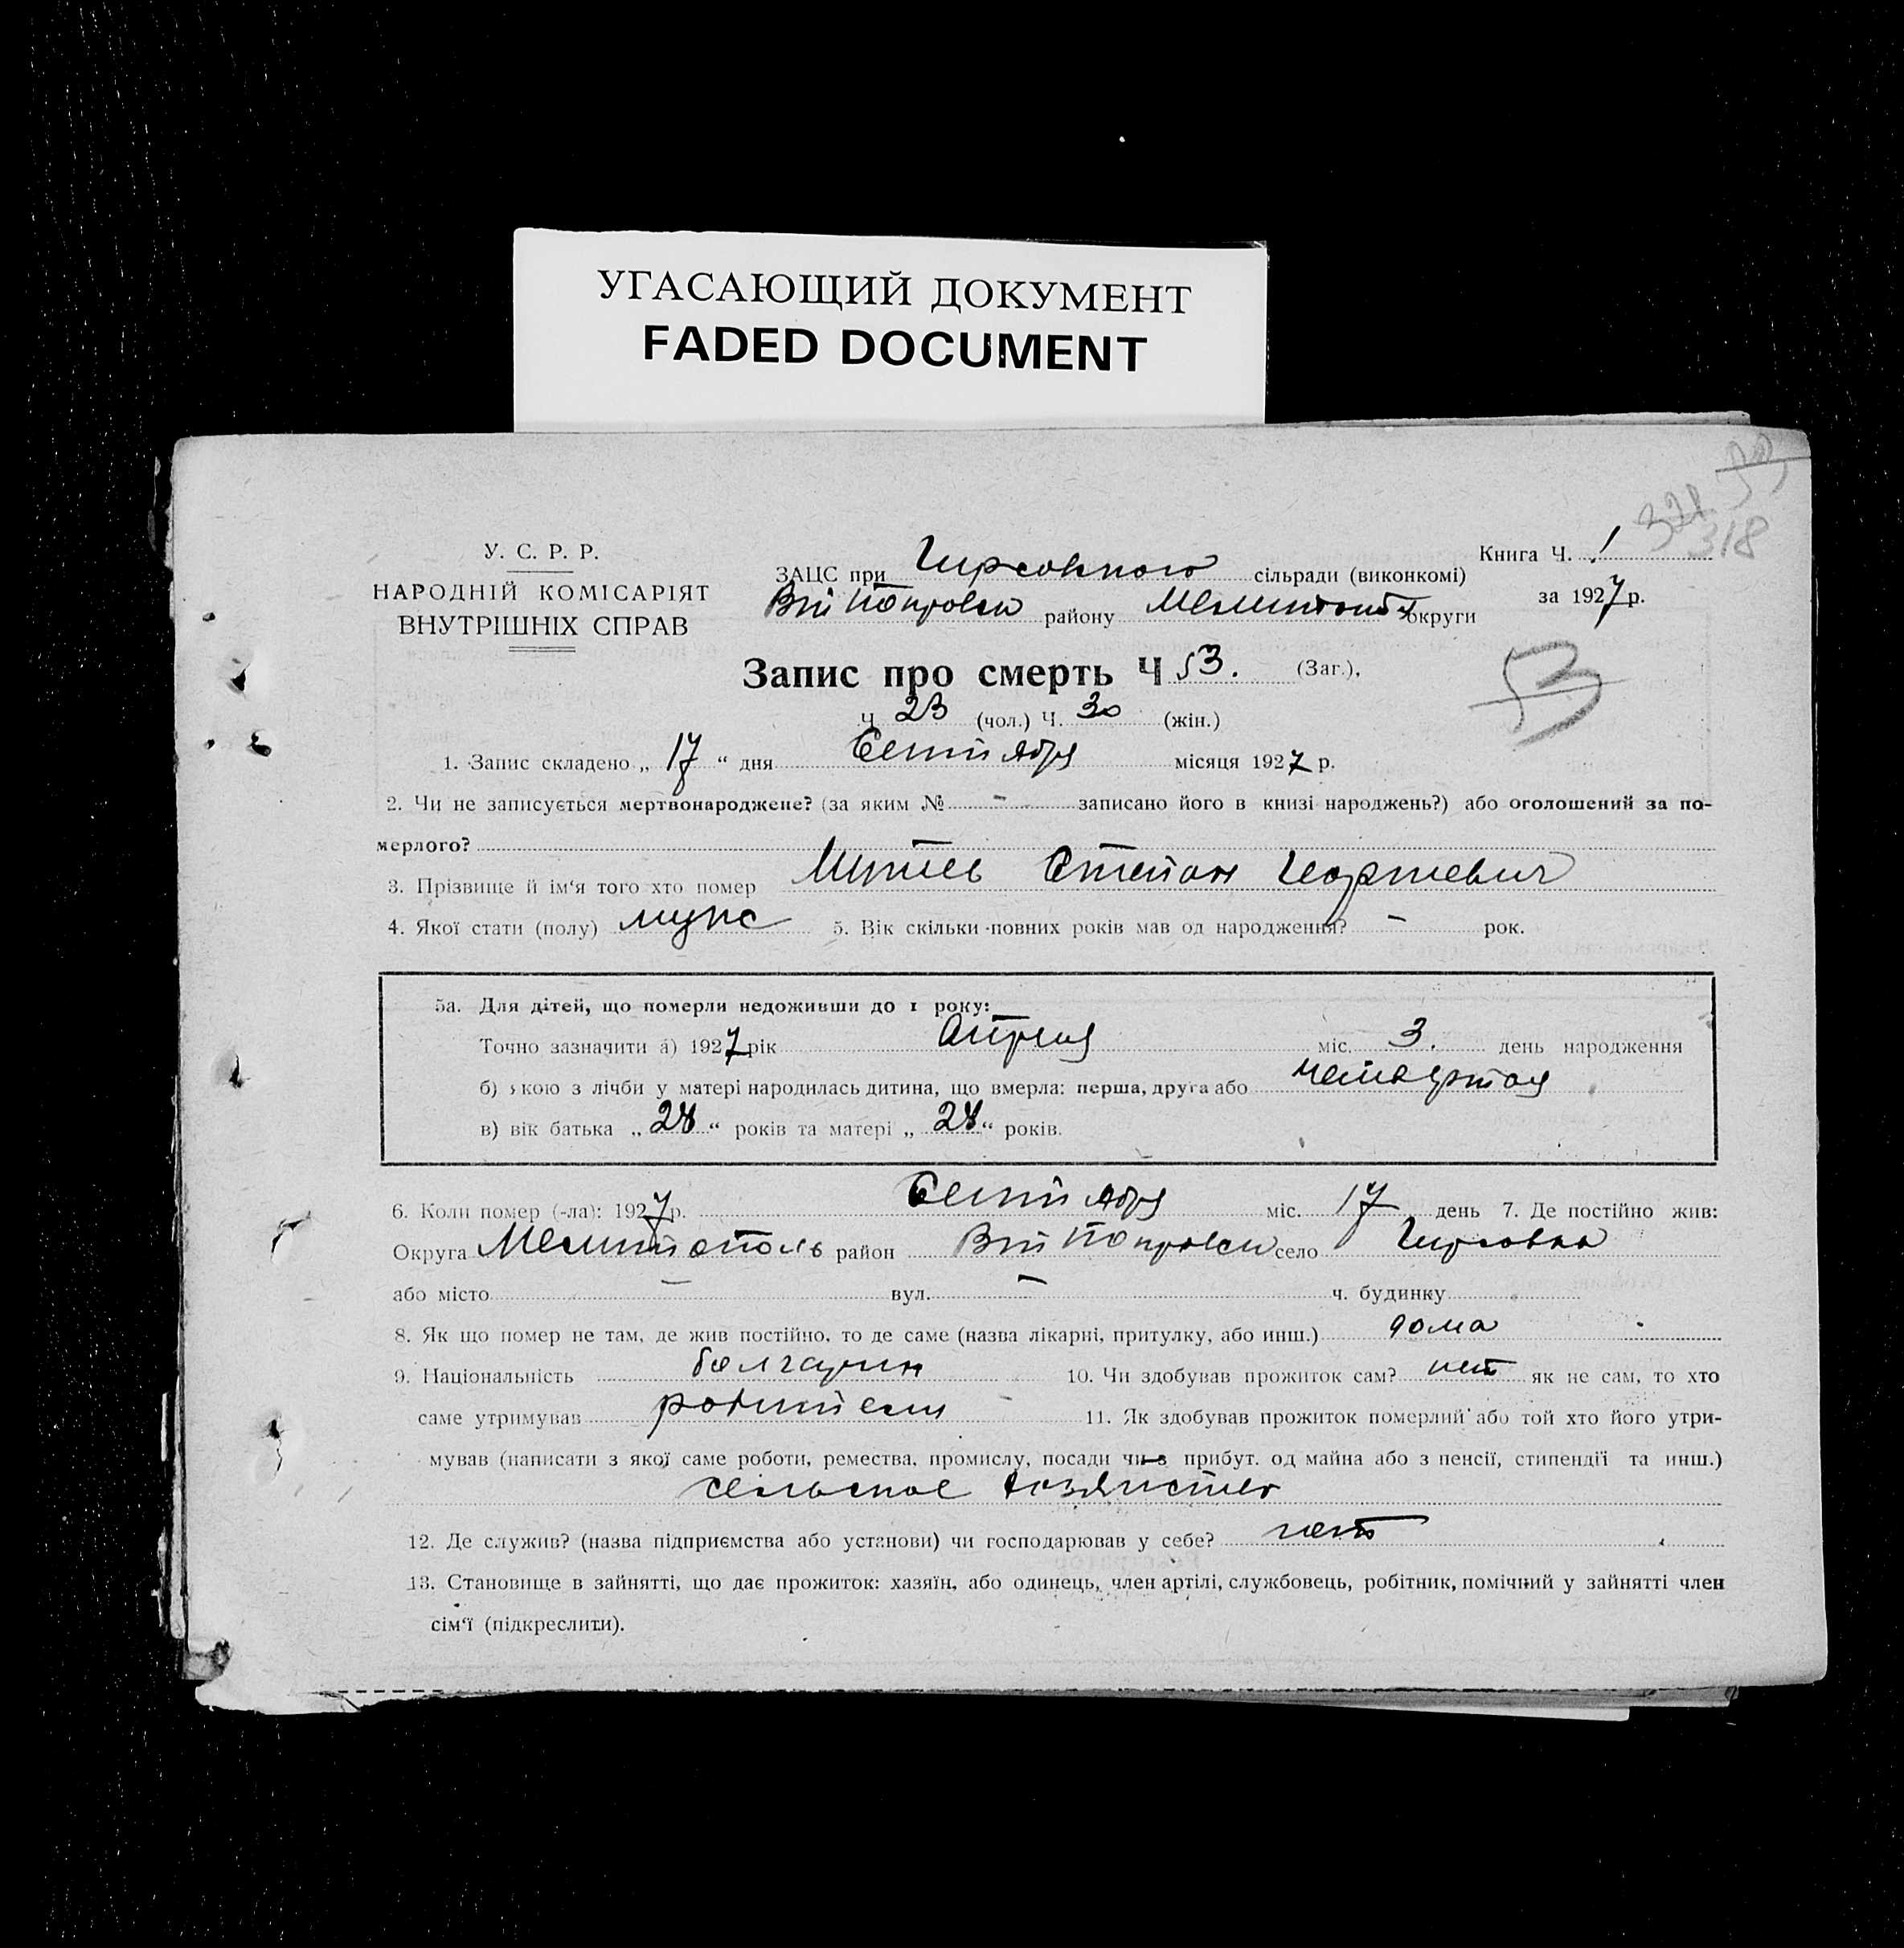 УГАСАЮЩИЙ ДОКУМЕНТ
FADED DOCUMENT
318
У. С. Р. Р.
НАРОДНІЙ КОМІСАРІЯТ
ВНУТРІШНІХ СПРАВ
Книга Ч. 1
за 1927 р.
ЗАЦС при Гирсовского сільради (виконкомі)
району округи
53
Запис про смерть Ч 53. (Заг.),
Ч 23 (чол.) Ч. 30 (жін.)
1. Запис складено „ 17 “ дня Сентября місяця 1927 р.
2. Чи не записується мертвонароджене? (за яким № - записано його в книзі народжень?) або оголошений за по-
мерлого?
3. Прізвище й ім‘я того хто помер Митев Степан Георгиевич
4. Якої стати (полу) мужс 5. Вік скільки повних років мав од народження? - рок.
5а. Для дітей, що померли недоживши до 1 року:
Точно зазначити а) 1927 рік Апреля міс. 3. день народження
б) якою з лічби у матері народилась дитина, що вмерла: перша, друга або четвертая
в) вік батька „ 28 “ років та матері „ 28 “ років.
6. Коли помер (-ла): 1927 р. Сентября міс. 17 день 7. Де постійно жив:
Округа Мелитополь район село Гирсовка
або місто — вул. — ч. будинку
8. Як що помер не там, де жив постійно, то де саме (назва лікарні, притулку, або инш.) дома
9. Національність болгарин 10. Чи здобував прожиток сам? нет як не сам, то хто
саме утримував родители 11. Як здобував прожиток померлий або той хто його утри-
мував (написати з якої саме роботи, ремества, промислу, посади чи з прибут. од майна або з пенсії, стипендії та инш.)
сельское хозяйство
12. Де служив? (назва підприємства або установи) чи господарював у себе? нет
13. Становище в зайнятті, що дає прожиток: хазяїн, або одинець, член артілі, службовець, робітник, помічний у зайнятті член
сім‘ї (підкреслити).